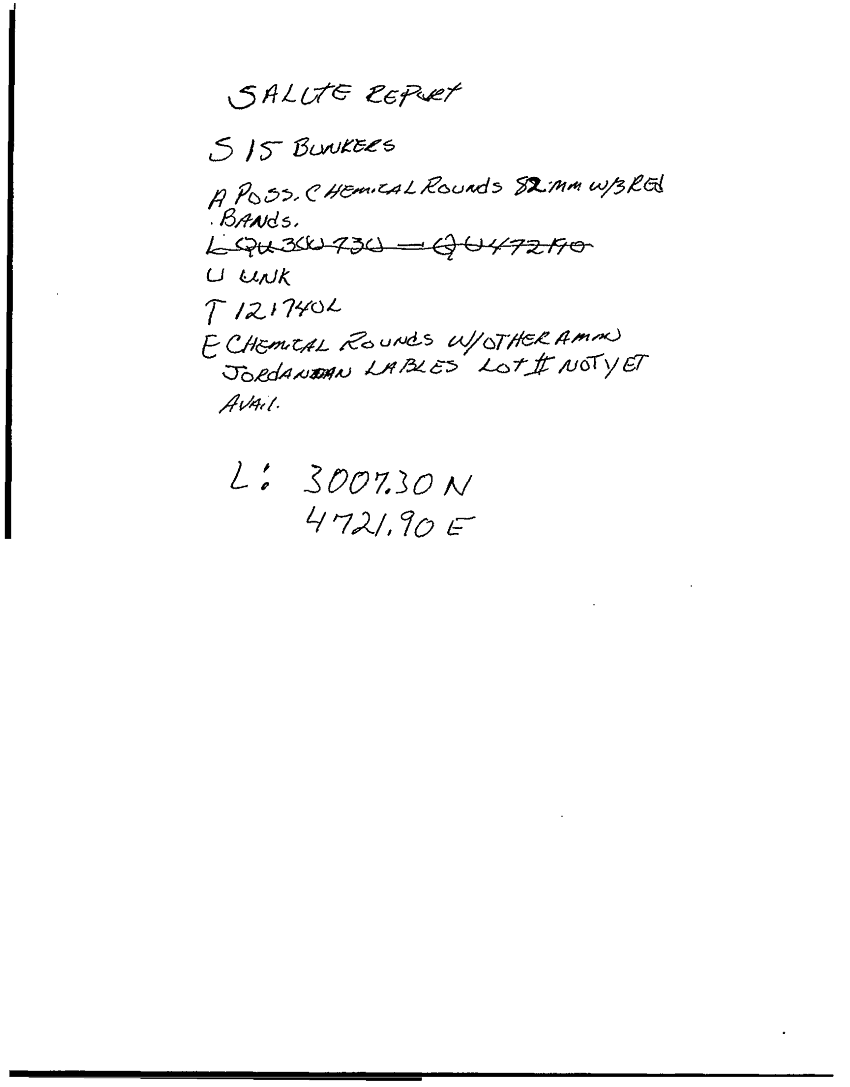 SALUTE REPORT
S 15 BUNKERS
A POSS. CHEMICAL ROUNDS 82 MM W/3 RED
BANDS.
L QU300730 — QU472190
U UNK
T 121740L
E CHEMICAL ROUNDS W/OTHER AMMO
JORDANIAN LABLES LOT # NOT YET
AVAIL.
L: 3007.30 N
4721.90 E